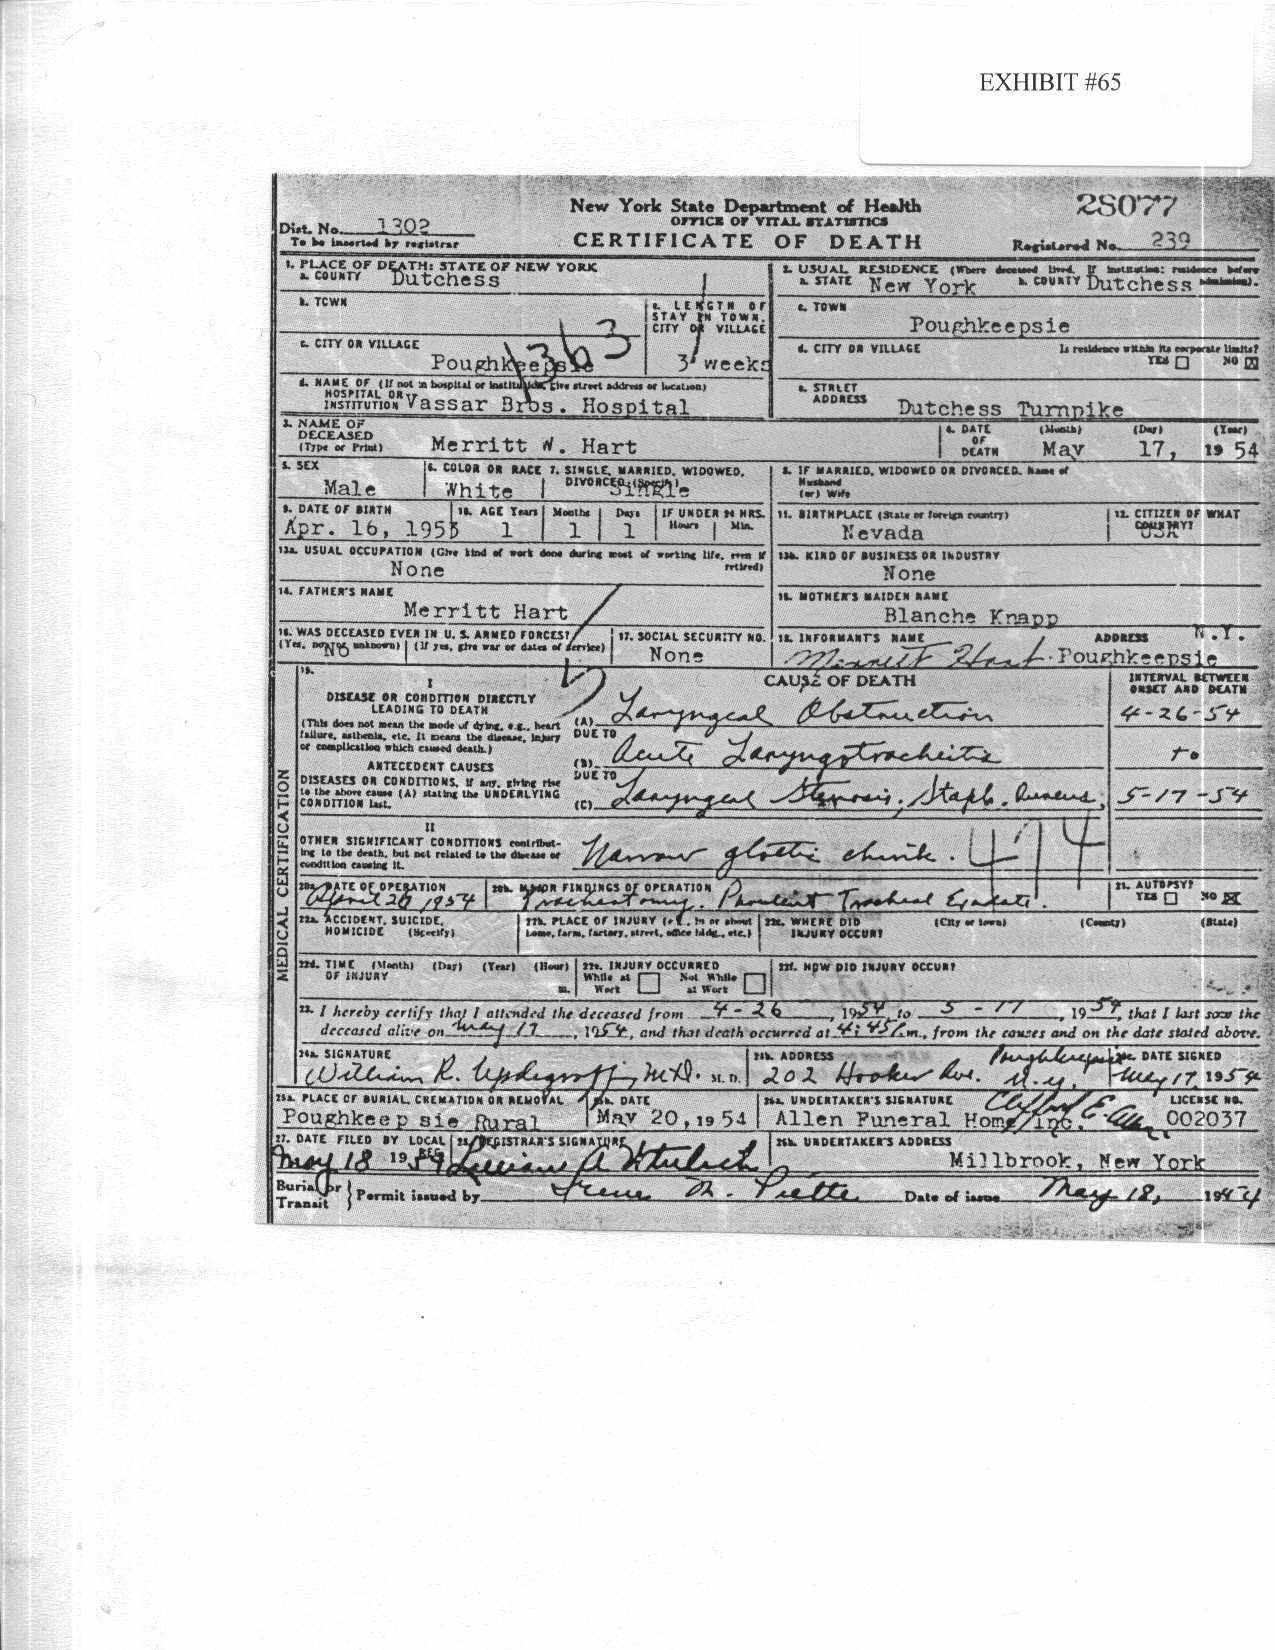 EXHIBIT #65
New York State Department of Health
OFFICE OF VITAL STATISTICS
CERTIFICATE OF DEATH
28077
Dist. No. 1302
To be inserted by registrar
Registered No. 239
1. PLACE OF DEATH: STATE OF NEW YORK
a. COUNTY Dutchess
2. USUAL RESIDENCE (Where deceased lived. If institution: residence before admission).
a. STATE New York b. COUNTY Dutchess
b. TOWN
c. LENGTH OF STAY IN TOWN, CITY OR VILLAGE
3 weeks
c. TOWN
Poughkeepsie
c. CITY OR VILLAGE
Poughkeepsie
1363
d. CITY OR VILLAGE
Is residence within its corporate limits?
YES NO X
d. NAME OF (If not in hospital or institution, give street address or location)
HOSPITAL OR
INSTITUTION Vassar Bros. Hospital
e. STREET
ADDRESS Dutchess Turnpike
3. NAME OF
DECEASED
(Type or Print) Merritt W. Hart
4. DATE OF DEATH (Month) (Day) (Year)
May 17, 19 54
5. SEX
Male
6. COLOR OR RACE
White
7. SINGLE, MARRIED, WIDOWED, DIVORCED (Specify)
Single
8. IF MARRIED, WIDOWED OR DIVORCED. Name of
Husband
(or) Wife
9. DATE OF BIRTH
Apr. 16, 1953
10. AGE Years Months Days
1 1 1
IF UNDER 24 HRS.
Hours Min.
11. BIRTHPLACE (State or foreign country)
Nevada
12. CITIZEN OF WHAT COUNTRY?
USA
13a. USUAL OCCUPATION (Give kind of work done during most of working life, even if retired)
None
13b. KIND OF BUSINESS OR INDUSTRY
None
14. FATHER'S NAME
Merritt Hart
15. MOTHER'S MAIDEN NAME
Blanche Knapp
16. WAS DECEASED EVER IN U. S. ARMED FORCES?
(Yes, no, or unknown) (If yes, give war or dates of service)
No
17. SOCIAL SECURITY NO.
None
18. INFORMANT'S NAME ADDRESS
Merritt Hart Poughkeepsie N.Y.
19.
CAUSE OF DEATH
INTERVAL BETWEEN
ONSET AND DEATH
I
DISEASE OR CONDITION DIRECTLY
LEADING TO DEATH
(This does not mean the mode of dying, e.g., heart
failure, asthenia, etc. It means the disease, injury
or complication which caused death.)
(A) Laryngeal Obstruction 4-26-54
DUE TO
ANTECEDENT CAUSES
(B) Acute Laryngotracheitis to
DISEASES OR CONDITIONS, if any, giving rise
to the above cause (A) stating the UNDERLYING
CONDITION last.
DUE TO
(C) Laryngeal Stenosis; Staph. Aureus; 5-17-54
II
OTHER SIGNIFICANT CONDITIONS contribut-
ing to the death, but not related to the disease or
condition causing it.
Narrow glottic chink.
474
MEDICAL CERTIFICATION
20a. DATE OF OPERATION
April 26 1954
20b. MAJOR FINDINGS OF OPERATION
Tracheotomy. Purulent Tracheal Exudate.
21. AUTOPSY?
YES NO X
22a. ACCIDENT, SUICIDE,
HOMICIDE (Specify)
22b. PLACE OF INJURY (e.g., in or about
home, farm, factory, street, office bldg., etc.)
22c. WHERE DID
INJURY OCCUR?
(City or town) (County) (State)
22d. TIME (Month) (Day) (Year) (Hour)
OF INJURY m.
22e. INJURY OCCURRED
While at Work Not While at Work
22f. HOW DID INJURY OCCUR?
23. I hereby certify that I attended the deceased from 4-26, 1954 to 5-17, 1954, that I last saw the
deceased alive on May 17, 1954, and that death occurred at 4:45 P.m., from the causes and on the date stated above.
24a. SIGNATURE
William R. Updegraff, M.D. M. D.
24b. ADDRESS
202 Hooker Ave. Poughkeepsie N.Y.
24c. DATE SIGNED
May 17, 1954
25a. PLACE OF BURIAL, CREMATION OR REMOVAL
Poughkeepsie Rural
25b. DATE
May 20, 19 54
26a. UNDERTAKER'S SIGNATURE
Allen Funeral Home, Inc. Clifford E. Allen
LICENSE NO.
002037
27. DATE FILED BY LOCAL REG.
May 18 1954
28. REGISTRAR'S SIGNATURE
26b. UNDERTAKER'S ADDRESS
Millbrook, New York
Burial or
Transit } Permit issued by Irene M. Piette Date of issue May 18, 1954